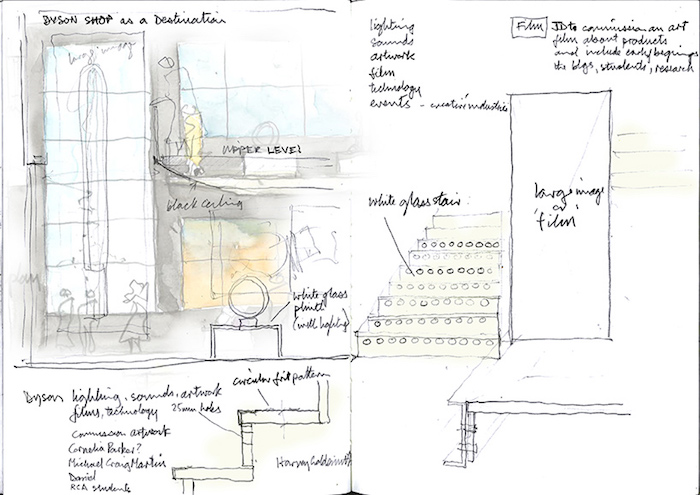 DYSON SHOP as a Destination
large image
UPPER LEVEL
black ceiling
white glass
plinth
(with lighting)
Dyson lighting, sounds, artwork
films, technology
commission artwork
Cornelia Parker?
Michael Craig Martin
Daniel
RCA students
circular frit pattern
25mm holes
lighting
sounds
artwork
film
technology
events - creative industries
Film
JD to commission an art
film about products
and include early beginings
the bldgs, students, research
white glass stair
large image
or
'film'